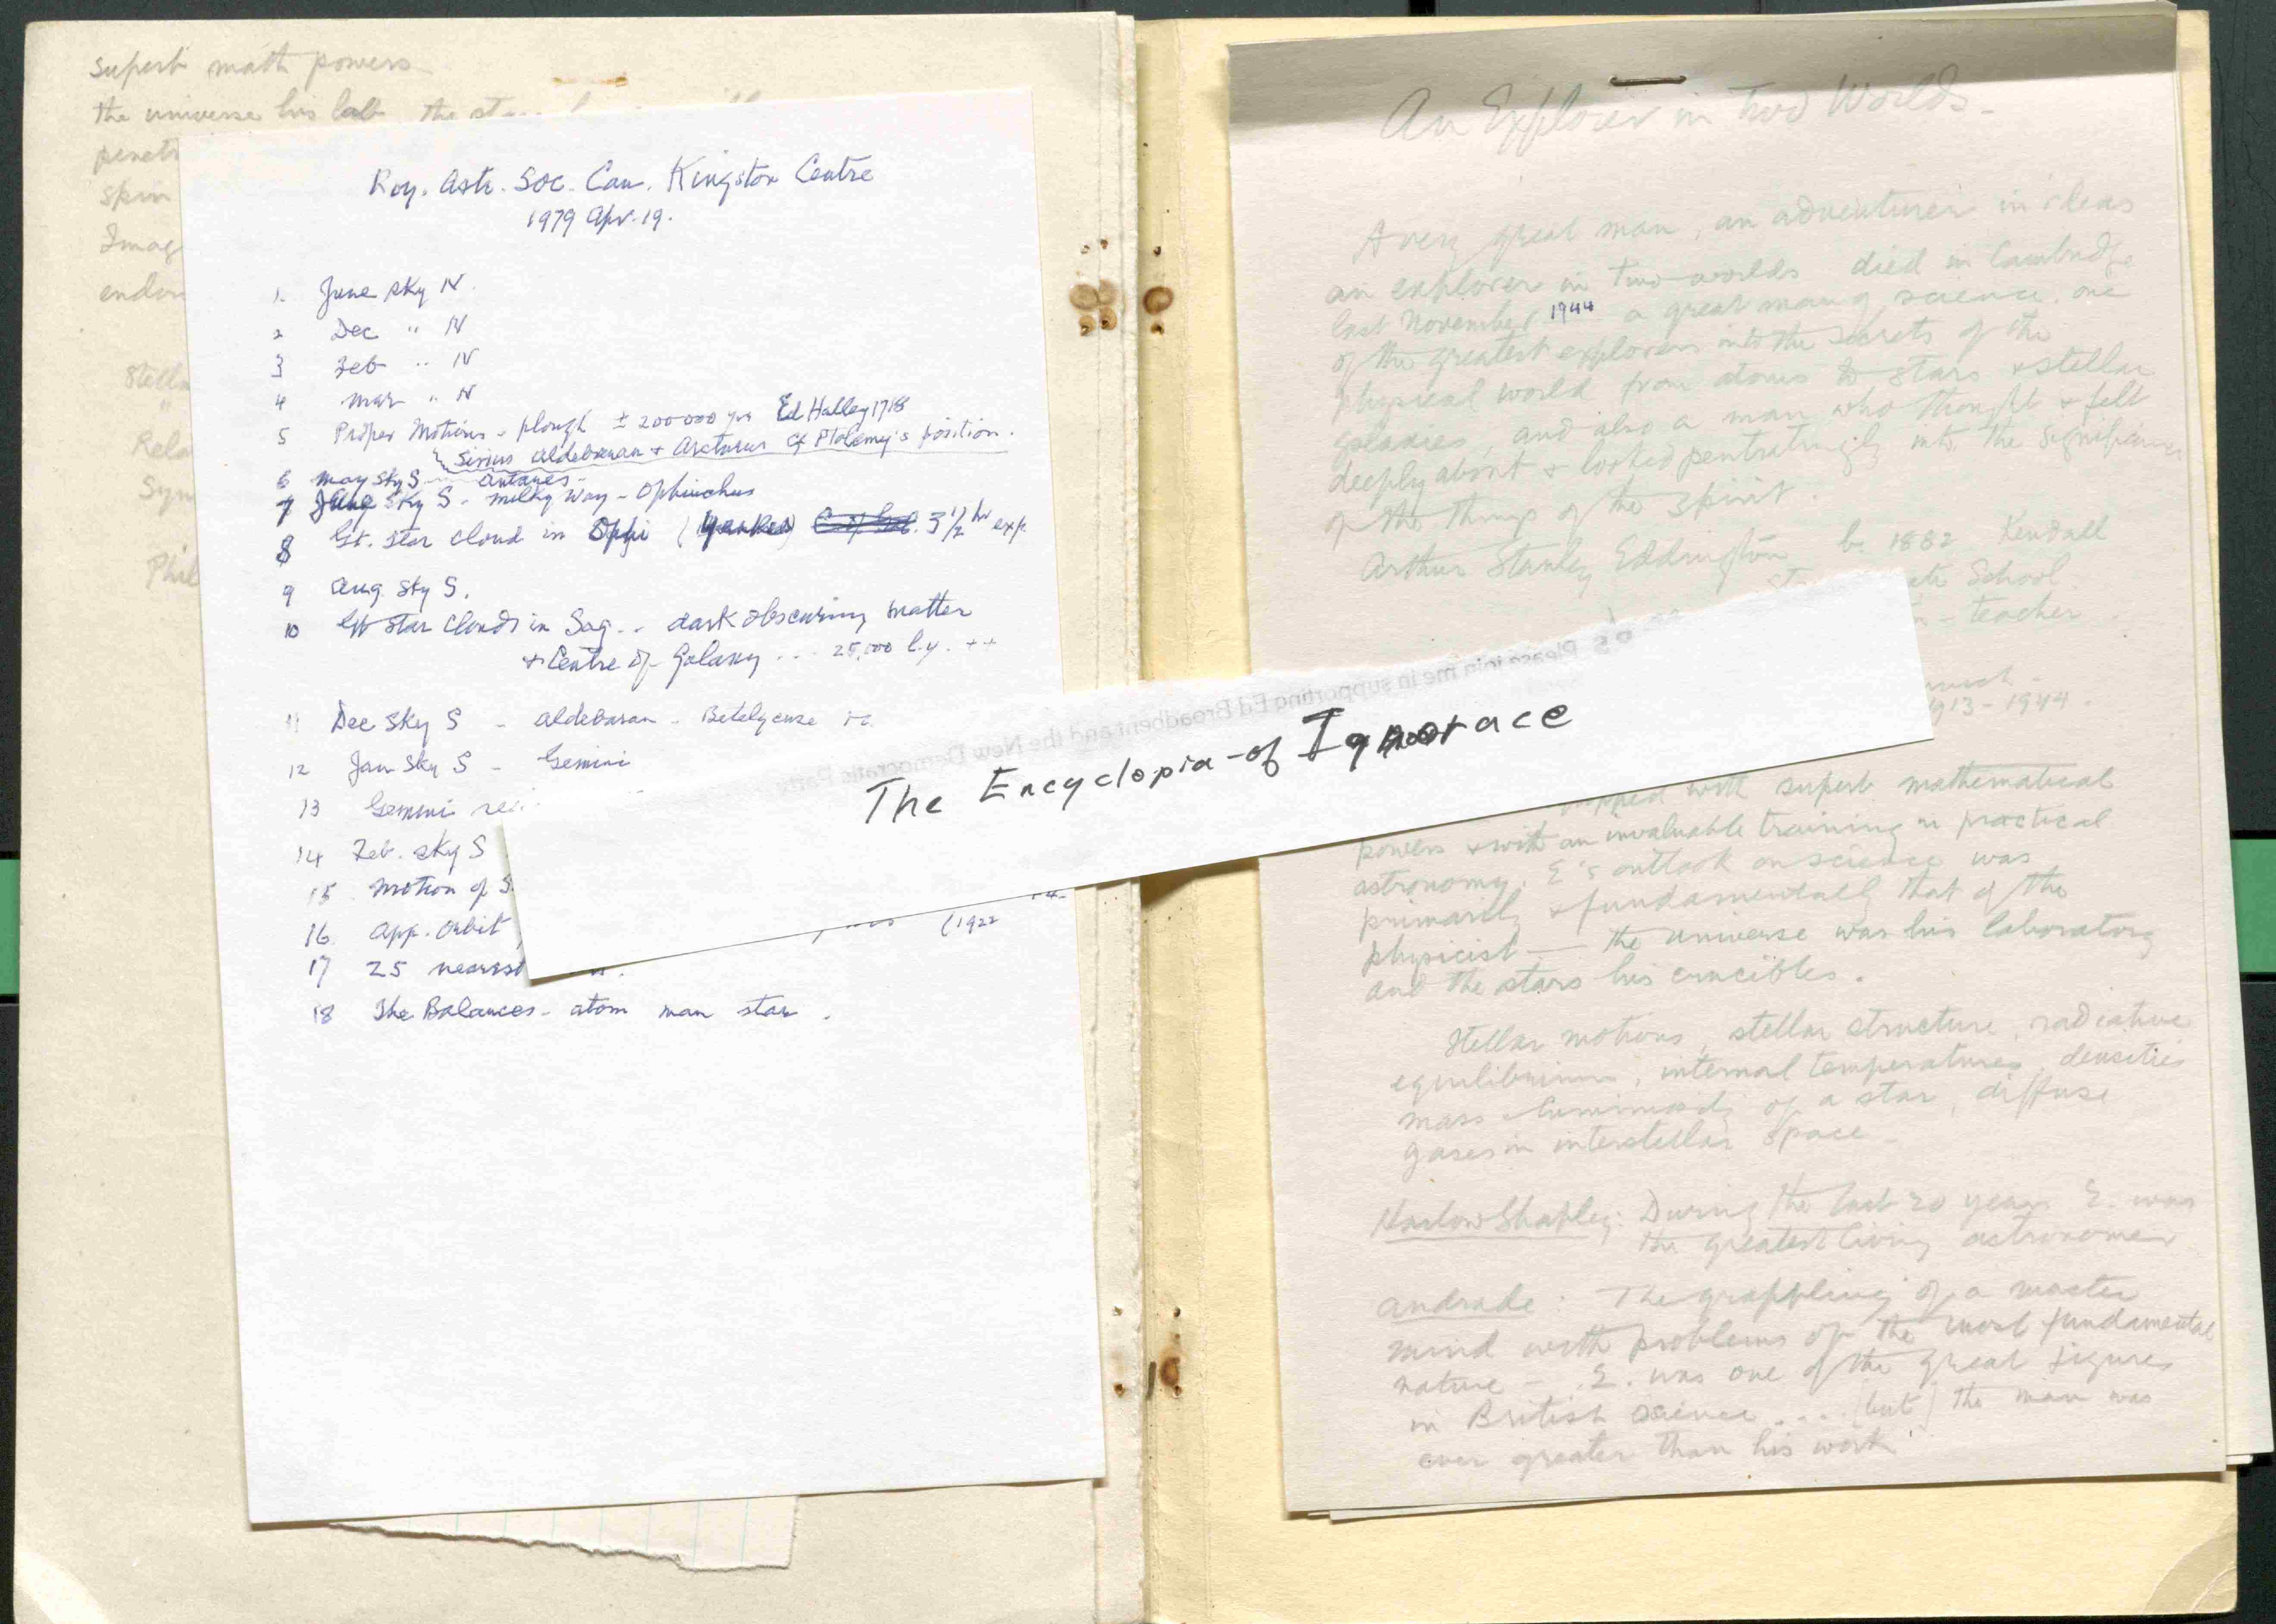 Superb math powers
the universe his lab the
penet
spin
Imag
endow
Stella
"
Rela
Syn
Phil
Roy. Astr. Soc. Can. Kingston Centre
1979 Apr. 19.
1. June sky N.
2 Dec " N
3 Feb " N
4 Mar " N
5 Proper Motions - plough ± 200 000 yrs Ed Halley 1718
Sirius Aldebaran + Arcturus cf Ptolemy's position.
6 May Sky S - Antares -
7 Sky S - Milky Way - Ophiuchus
8 Gt. Star Cloud in Ophi (Yerkes) 3 1/2 hr exp.
9 Aug. Sky S.
10 Gt Star Clouds in Sag .. dark obscuring matter
+ Centre of Galaxy ... 25,000 l.y. ++
11 Dec Sky S - Aldebaran - Betelgeuse
12 Jan Sky S - Gemini
13 Gemini
14 Feb. Sky S
15 Motion of S
16 App. Orbit (1922
17 25 nearest
18 The Balances - atom man star.
P.S. Please join me in supporting Ed Broadbent and the New Democratic Party
The Encyclopia-of Ignorace
An Explorer in Two Worlds -
A very great man, an adventurer in ideas
an explorer in two worlds died in Cambridge
last November 1944 a great man of science, one
of the greatest explorers into the secrets of the
physical world from atoms to stars & stellar
galaxies and also a man who thought & felt
deeply about & looked pentratingly into the significance
of the things of the spirit.
Arthur Stanley Eddington b. 1882 Kendall
School.
- teacher
1913-1944.
with superb mathematical
powers & with an invaluable training in practical
astronomy. E's outlook on science was
primarily & fundamentally that of the
physicist — the universe was his laboratory
and the stars his crucibles.
Stellar motions, stellar structure, radiative
equilibrium, internal temperatures, densities
mass luminosity of a star, diffuse
gases in interstellar space -
Harlow Shapley: During the last 20 years E. was
the greatest living astronomer
Andrade: The grappling of a master
mind with problems of the most fundamental
nature - E. was one of the great figures
in British science .... (but) the man was
ever greater than his work